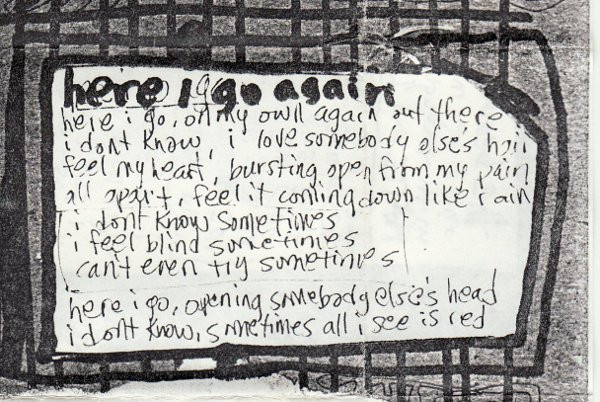 here i go again
here i go, on my own again out there
i dont know, i love somebody else's hair
feel my heart, bursting open from my pain
all apart, feel it coming down like rain
i dont know sometimes
i feel blind sometimes
can't even try sometimes
here i go, opening somebody else's head
i dont know, sometimes all i see is red